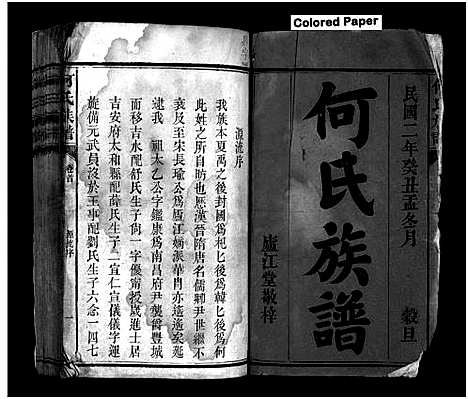 Colored Paper
民國二年癸丑孟冬月 穀旦
何氏族譜
廬江堂敬梓
源流序
我族本夏禹之後封國為杞匕後為韓匕後為何
此姓之所自昉也厯漢晉隋唐名儒
世繼不
衰及至宋長瑜公為廬江嫡派華門亦遙遙矣
逮我 祖太乙公字鑑康為南昌府尹襲爵豐城
而移吉水配舒氏生子
一字優甯授歲進士居
吉安府太和縣配薛氏生子二宣仁宣儀儀字運
旌備元武員沒於王事配劉氏生子六念一四七
何氏族譜
卷首
源流序
一